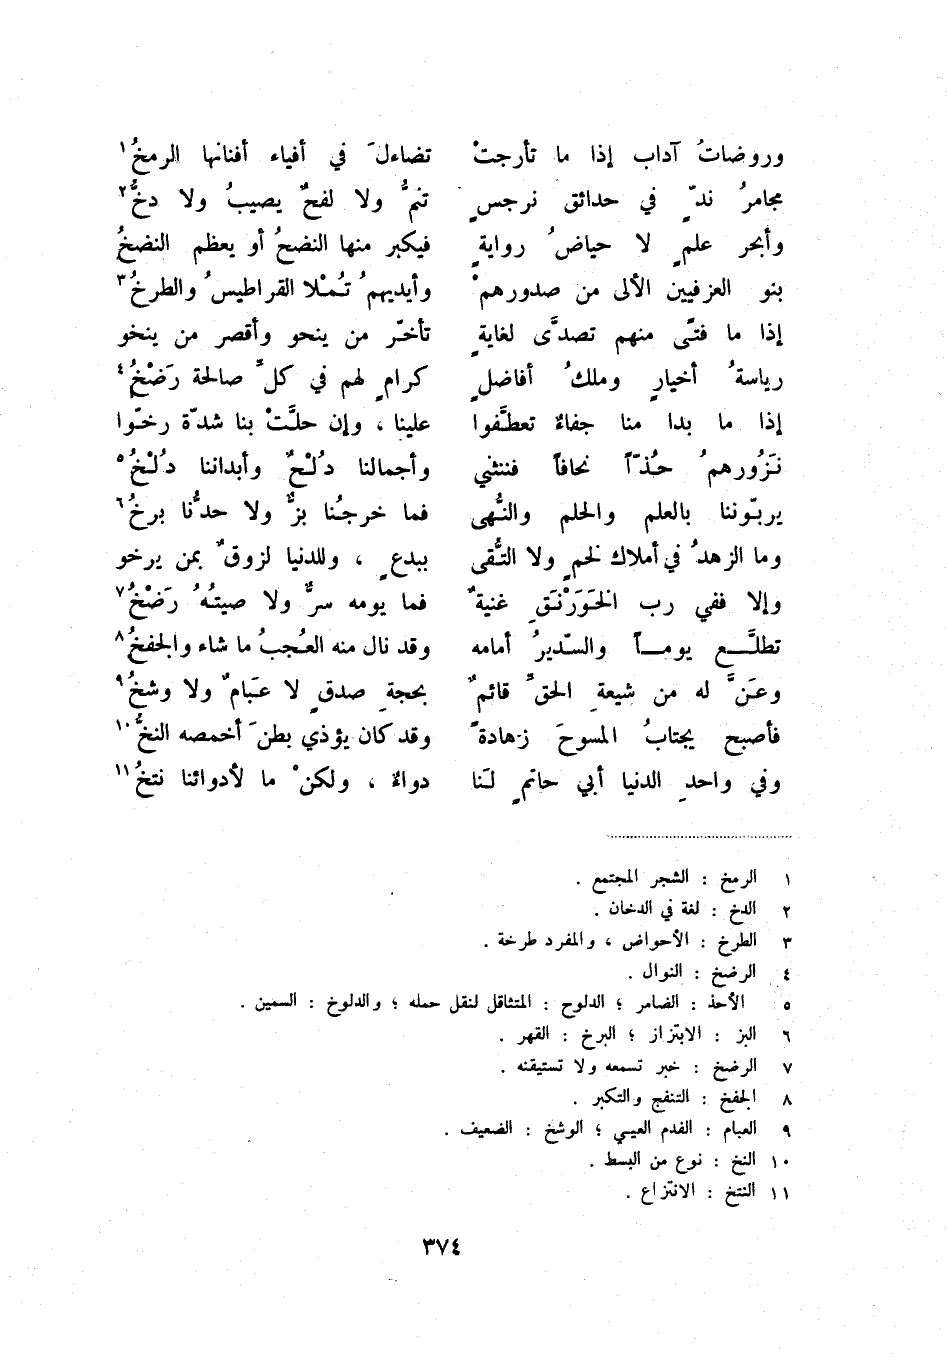 وروضاتُ آداب إذا ما تأرجتْ تضاءلَ في أفياء أفنانها الرمخُ١
مجامرُ ندّ في حدائق نرجسٍ تنمُّ ولا لفحٌ يصيبُ ولا دخُّ٢
وأبحر علمٍ لا حياضُ روايةٍ فيكبر منها النضحُ أو يعظم النضخُ
بنو العزفيين الألى من صدورهمْ وأيديهمُ تُمْلا القراطيسُ والطرخُ٣
إذا ما فتًى منهم تصدَّى لغايةٍ تأخّر من ينحو وأقصر من ينخو
رياسةُ أخيارٍ وملكُ أفاضلٍ كرامٍ لهم في كلّ صالحة رَضْخُ٤
إذا ما بدا منا جفاءٌ تعطَّفوا علينا ، وإن حلَّتْ بنا شدّة رخّوا
نَزُورهمُ حُذّاً نحافاً فننثني وأجمالنا دُلْحٌ وأبداننا دُلْخُ٥
يربّوننا بالعلم والحلم والنُّهى فما خرجُنا بزٌّ ولا حدُّنا برخُ٦
وما الزهدُ في أملاك لخمٍ ولا التُّقى ببدعٍ ، وللدنيا لزوقٌ بمن يرخو
وإلا ففي رب الخَوَرْنَقِ غنيةٌ فما يومه سرٌّ ولا صيتُهُ رَضْخُ٧
تطلَّع يوماً والسّديرُ أمامه وقد نال منه العُجبُ ما شاء والجفخُ٨
وعَنَّ له من شيعةِ الحقِّ قائمٌ بحجةِ صدقٍ لا عَبَامٌ ولا وشخُ٩
فأصبح يجتابُ المسوحَ زهادةً وقد كان يؤذي بطنَ أخمصه النخُّ١٠
وفي واحدِ الدنيا أبي حاتمٍ لَنا دواءٌ ، ولكنْ ما لأدوائنا نتخُ١١
١ الرمخ : الشجر المجتمع .
٢ الدخ : لغة في الدخان .
٣ الطرخ : الأحواض ، والمفرد طرخة .
٤ الرضخ : النوال .
٥ الأحذ : الضامر ؛ الدلوح : المتثاقل لنقل حمله ؛ والدلوخ : السمين .
٦ البز : الابتزاز ؛ البرخ : القهر .
٧ الرضخ : خبر تسمعه ولا تستيقنه .
٨ الجفخ : التنفج والتكبر .
٩ العبام : الفدم العيي ؛ الوشخ : الضعيف .
١٠ النخ : نوع من البسط .
١١ النتخ : الانتزاع .
٣٧٤